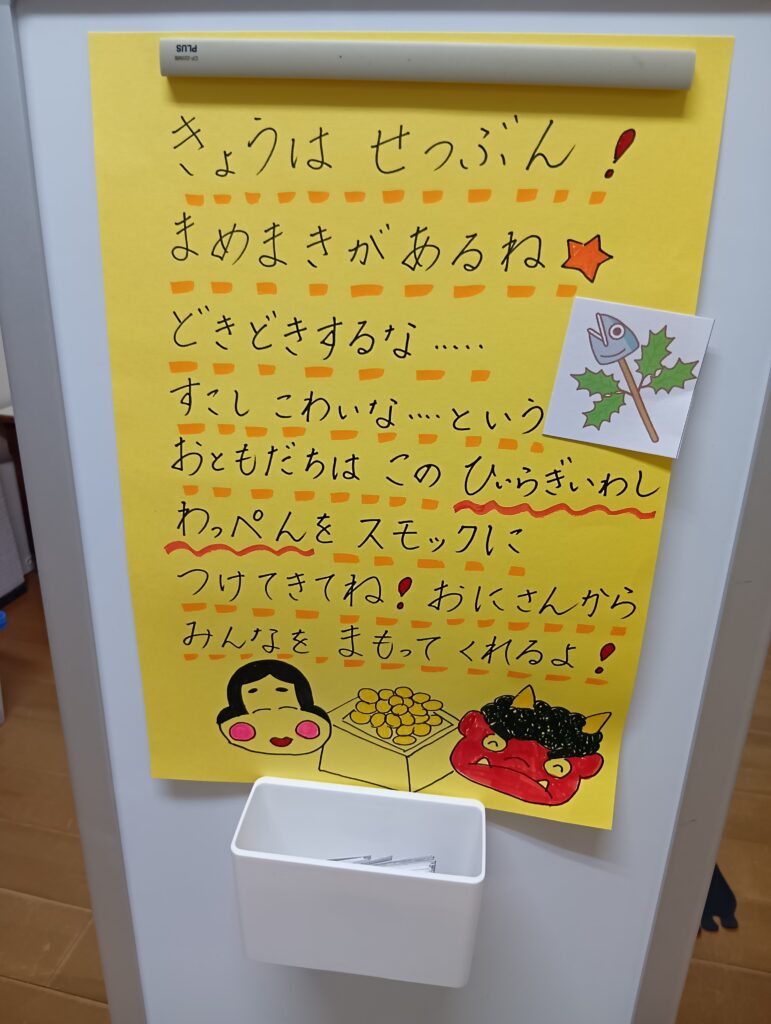 PLUS
CP-220MB
きょうは せつぶん！
まめまきがあるね
どきどきするな‥‥‥
すこし こわいな‥‥という
おともだちは この ひいらぎいわし
わっぺんを スモックに
つけてきてね！おにさんから
みんなを まもって くれるよ！